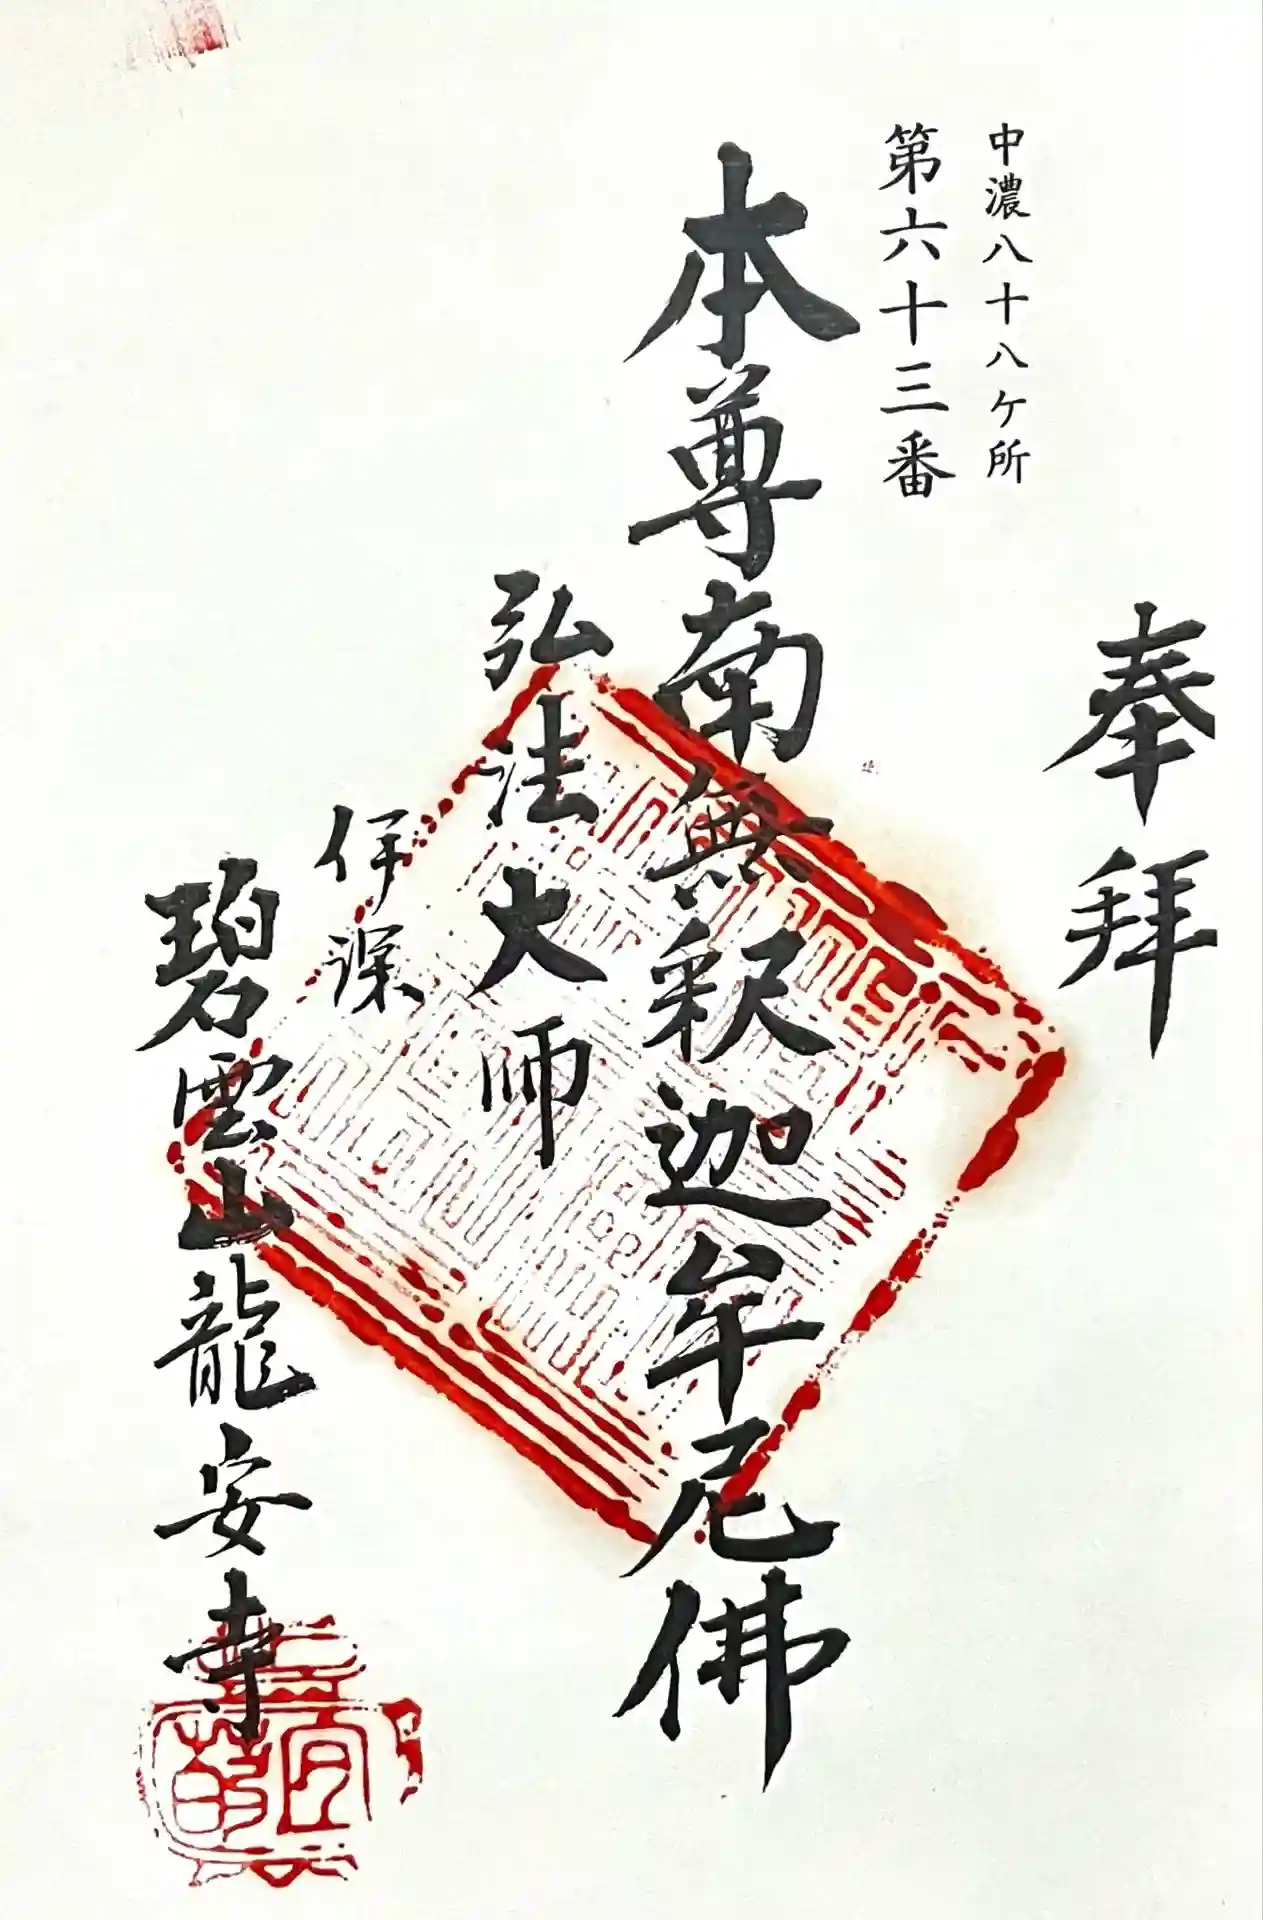 奉拜
中濃八十八ケ所
第六十三番
本尊南無釈迦牟尼佛
弘法大師
伊深
碧雲山龍安寺